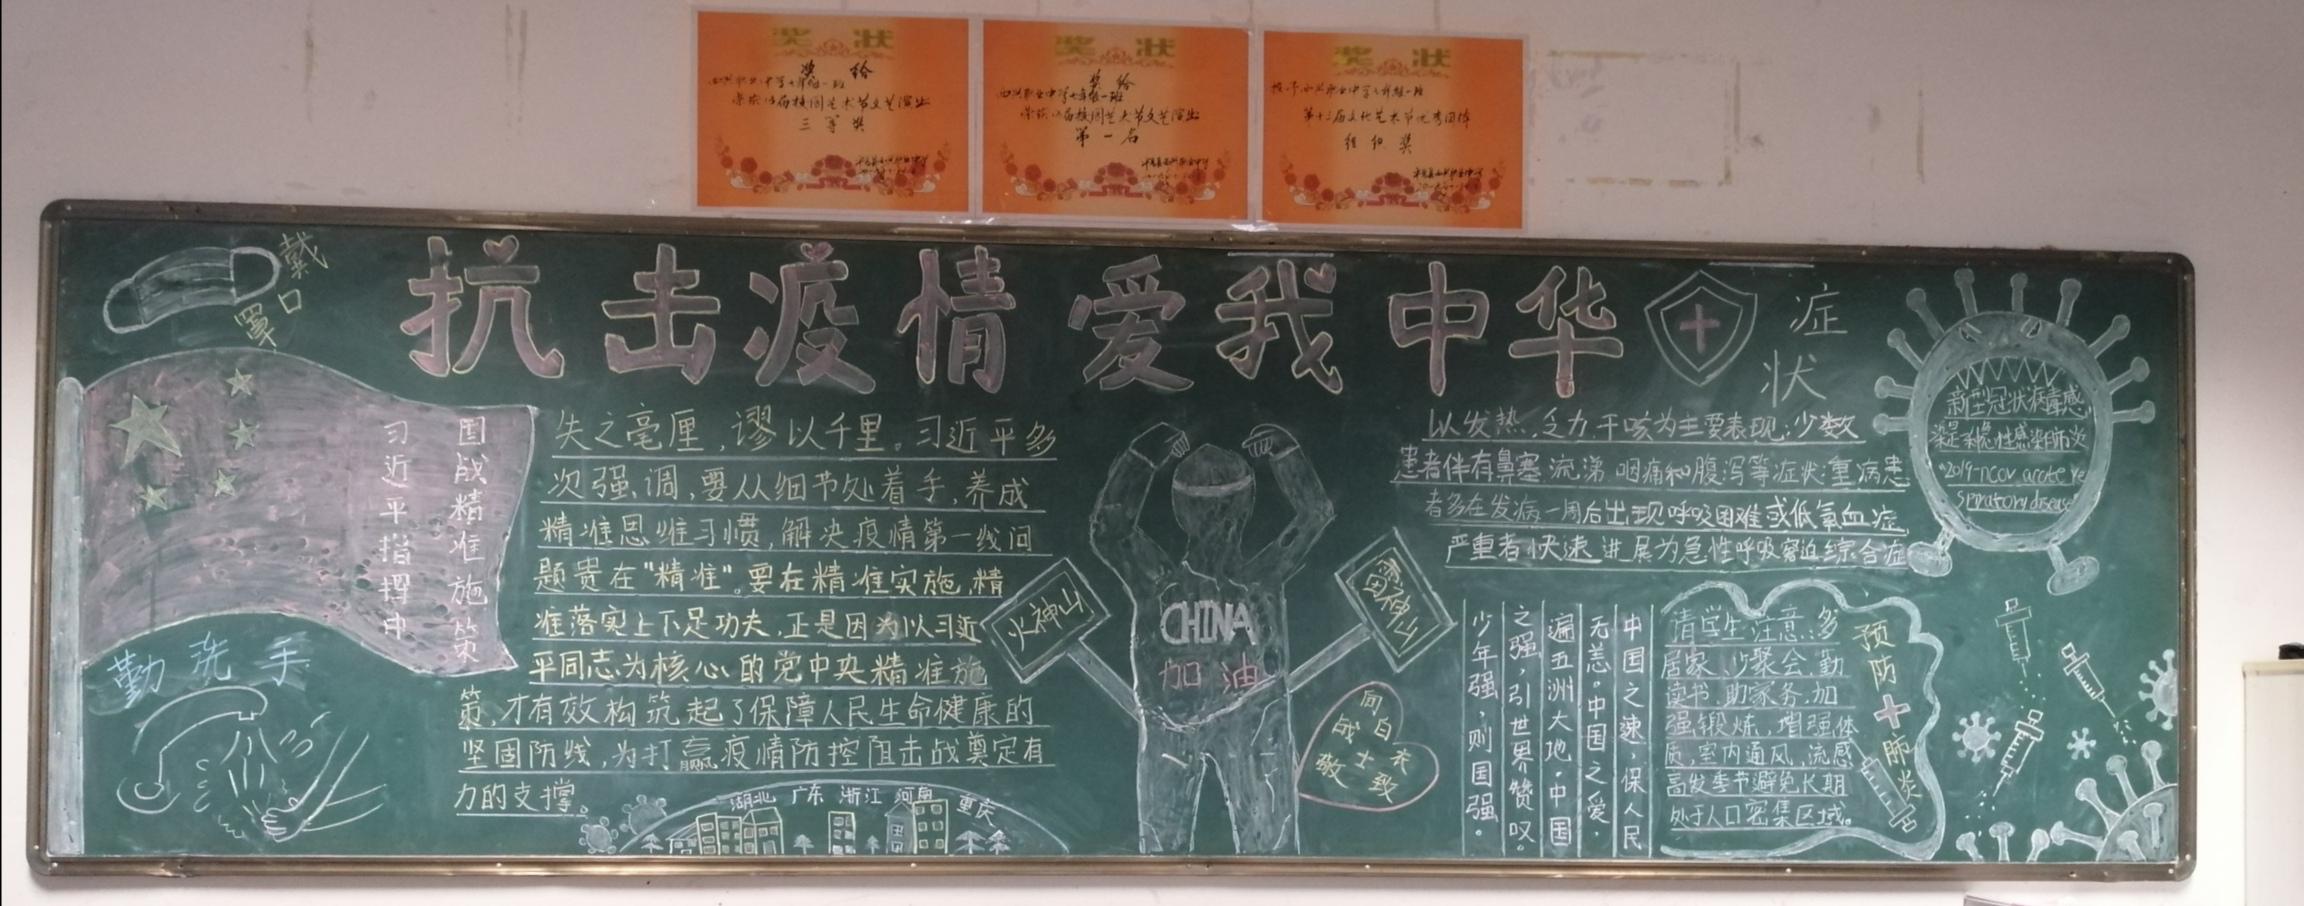 奖状
奖给
荣获13届校园艺术节文艺演出
三等奖
奖状
奖给
西兴职业中学七年级一班
荣获13届校园艺术节文艺演出
第一名
奖状
授予西兴职业中学七年级一班
第十三届文化艺术节优秀团体
组织奖
戴
口
罩
抗击疫情 爱我中华
症
状
国战精准施策
习近平指挥中
勤洗手
失之毫厘,谬以千里。习近平多
次强调,要从细节处着手,养成
精准思维习惯,解决疫情第一线问
题贵在"精准"。要在精准实施,精
准落实上下足功夫,正是因为以习近
平同志为核心的党中央精准施
策,才有效构筑起了保障人民生命健康的
坚固防线,为打赢疫情防控阻击战奠定有
力的支撑。
湖北 广东 浙江 河南 重庆
火神山
雷神山
CHINA
加油
向白衣
战士致
敬
以发热、乏力、干咳为主要表现;少数
患者伴有鼻塞、流涕、咽痛和腹泻等症状;重病患
者多在发病一周后出现呼吸困难或低氧血症,
严重者快速进展为急性呼吸窘迫综合症
新型冠状病毒感
染是一种急性感染肺炎
"2019-nCoV acute re
spiratory disease"
中国之速,保人民
无恙,中国之爱,
遍五洲大地,中国
之强,引世界赞叹。
少年强,则国强。
请学生注意:多
居家、少聚会、勤
读书、助家务、加
强锻炼,增强体
质,室内通风,流感
高发季节避免长期
处于人口密集区域。
预防+肺炎